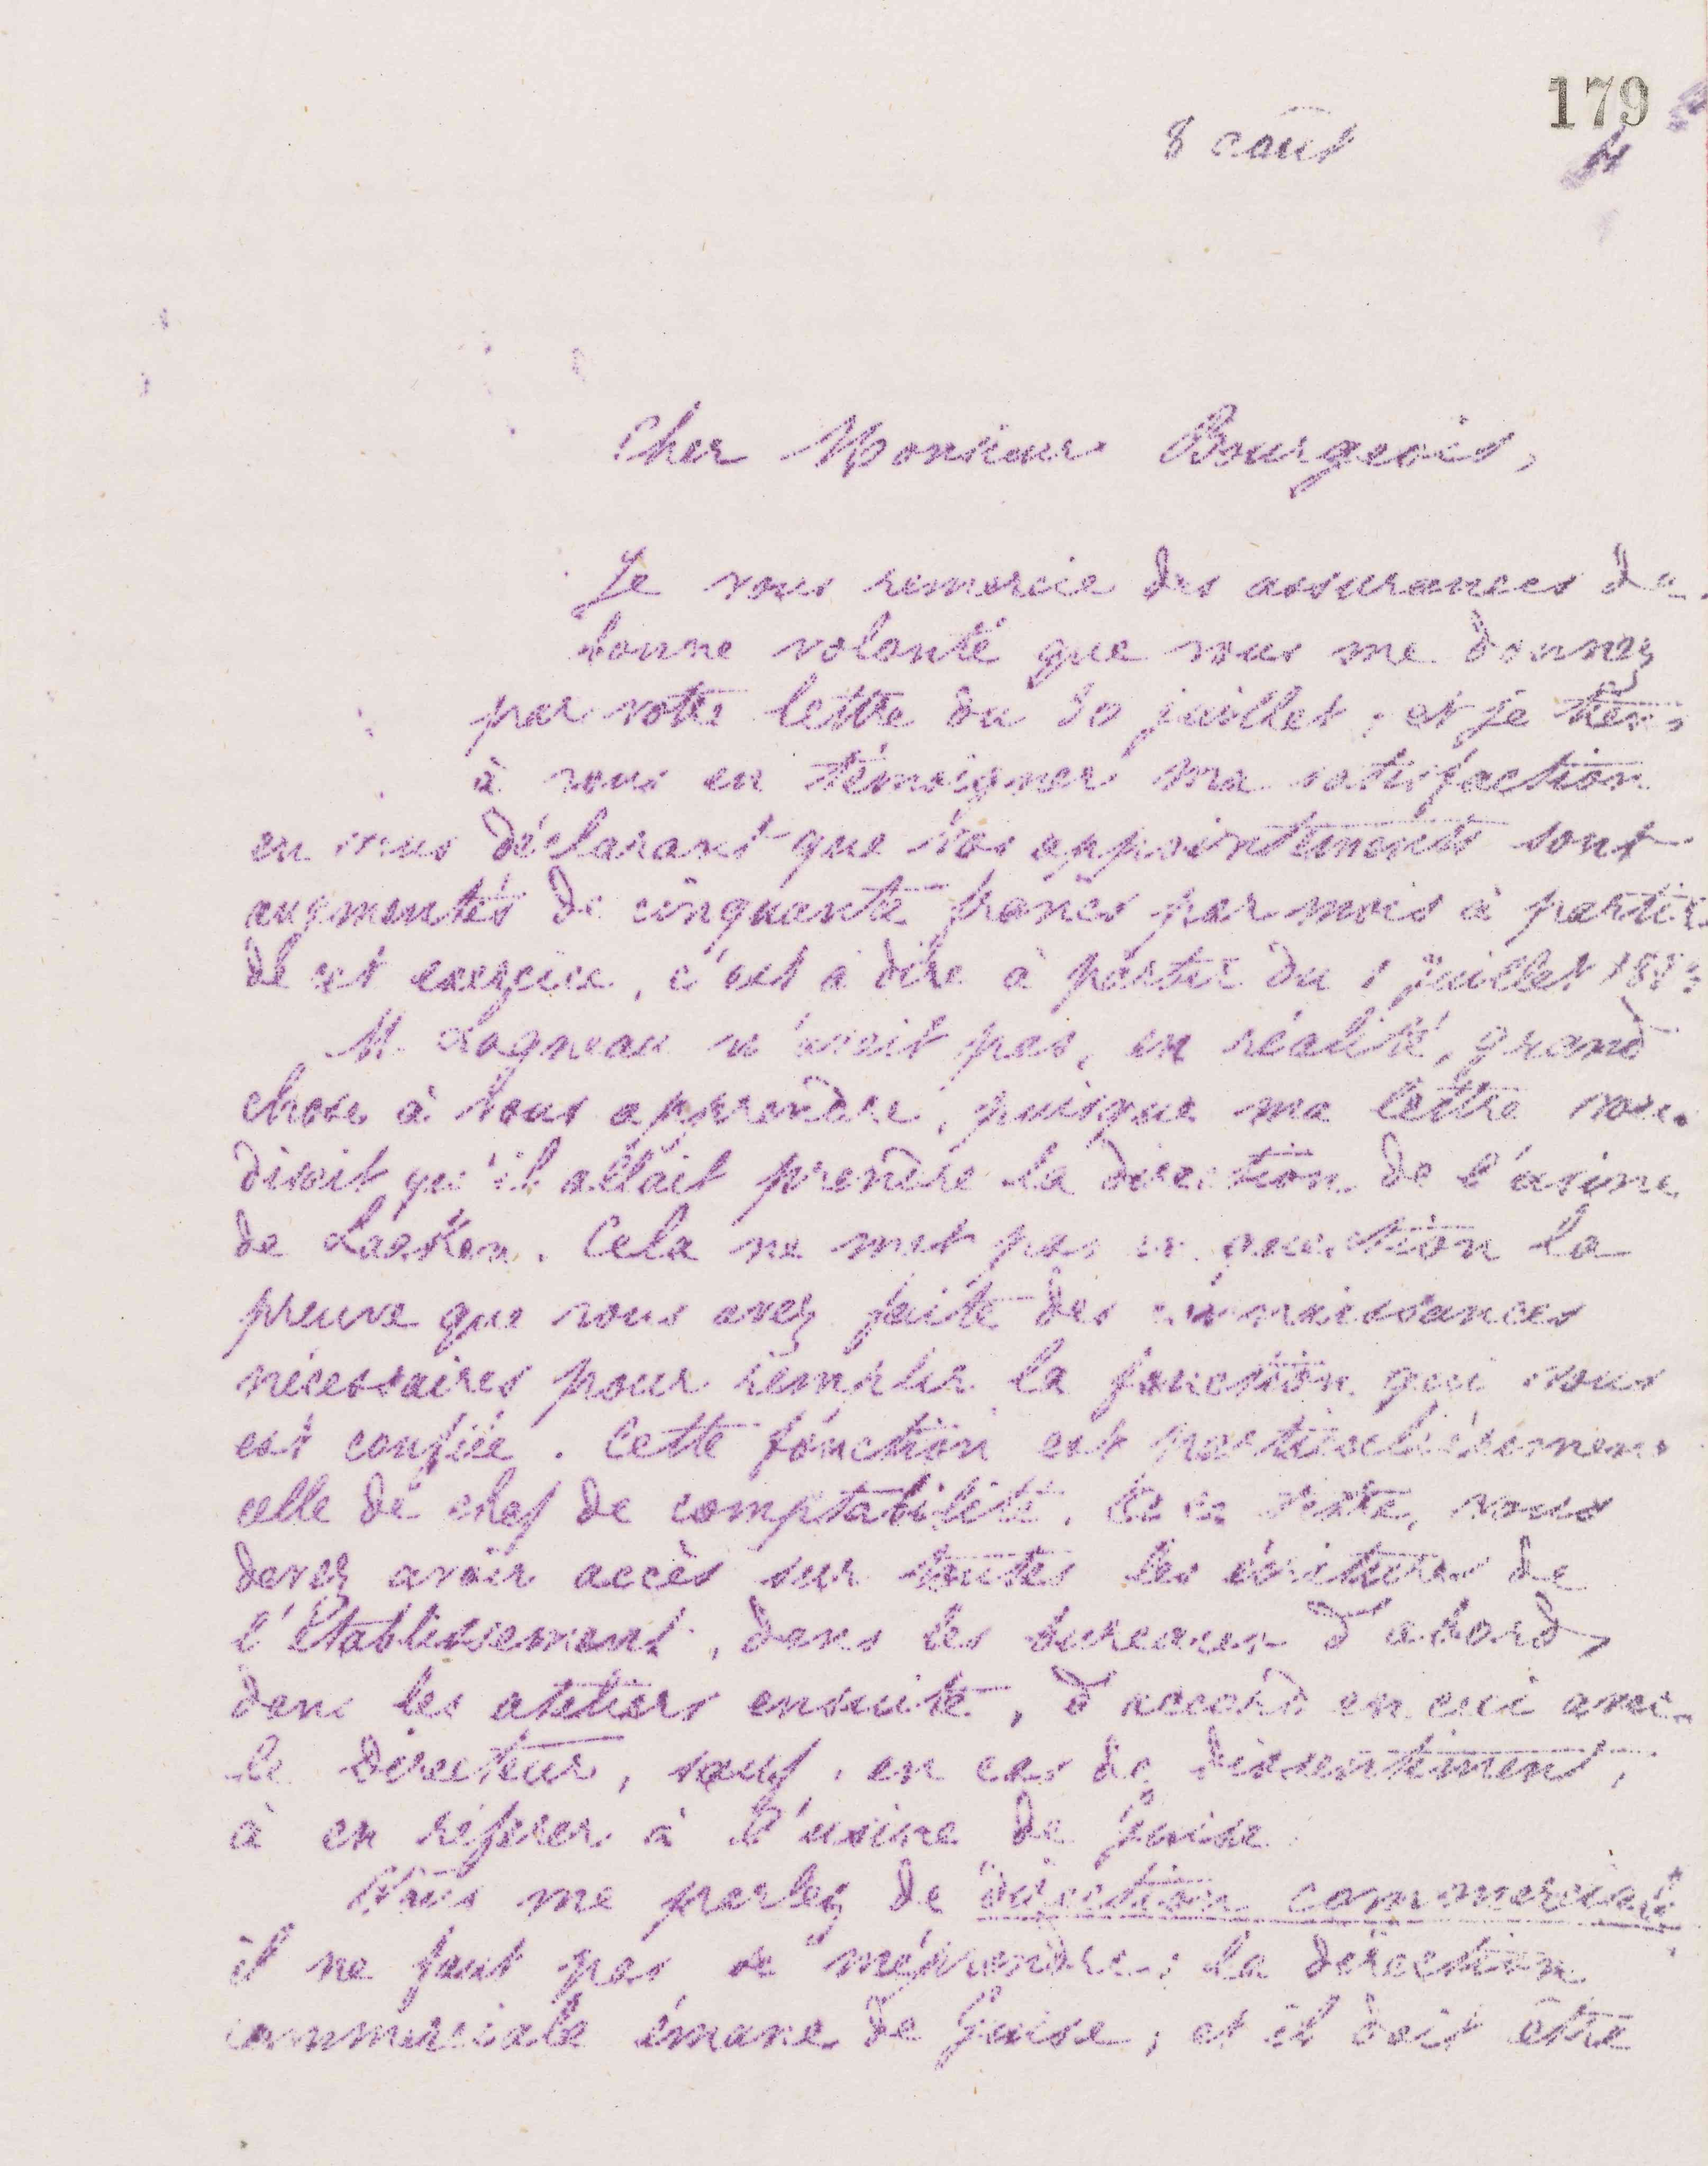 179
8 août
Cher Monsieur Bourgeois,
Je vous remercie des assurances de
bonne volonté que vous me donnez
par votre lettre du 30 juillet, et je tiens
à vous en témoigner ma satisfaction
en vous déclarant que vos appointements sont
augmentés de cinquante francs par mois à partir
de cet exercice, c'est à dire à partir du 1 juillet
M. Lagneau n'avait pas, en réalité, grand
chose à vous apprendre, puisque ma lettre vous
disait qu'il allait prendre la direction de l'usine
de Laeken. Cela ne met pas en question la
preuve que vous avez faite des connaissances
nécessaires pour remplir la fonction qui vous
est confiée. Cette fonction est particulièrement
celle de chef de comptabilité. vous
devez avoir accès sur toutes les écritures de
l'Etablissement, dans les bureaux d'abord,
dans les ateliers ensuite, d'accord en ceci avec
le Directeur, sauf, en cas de dissentiment,
à en référer à l'usine de Guise.
Vous me parlez de direction commerciale
il ne faut pas se méprendre ; la direction
commerciale émane de Guise, et il doit être